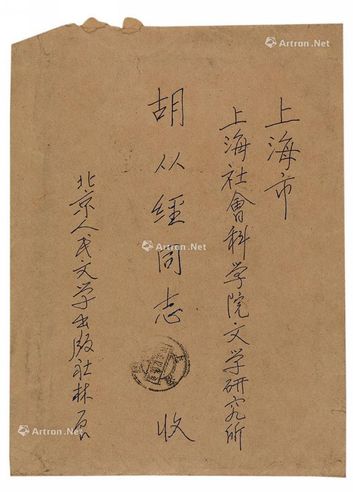 上海市
上海社會科学院文学研究所
胡从經同志 收
北京人民文学出版社林
Artron.Net
Artron.Net
Artron.Net